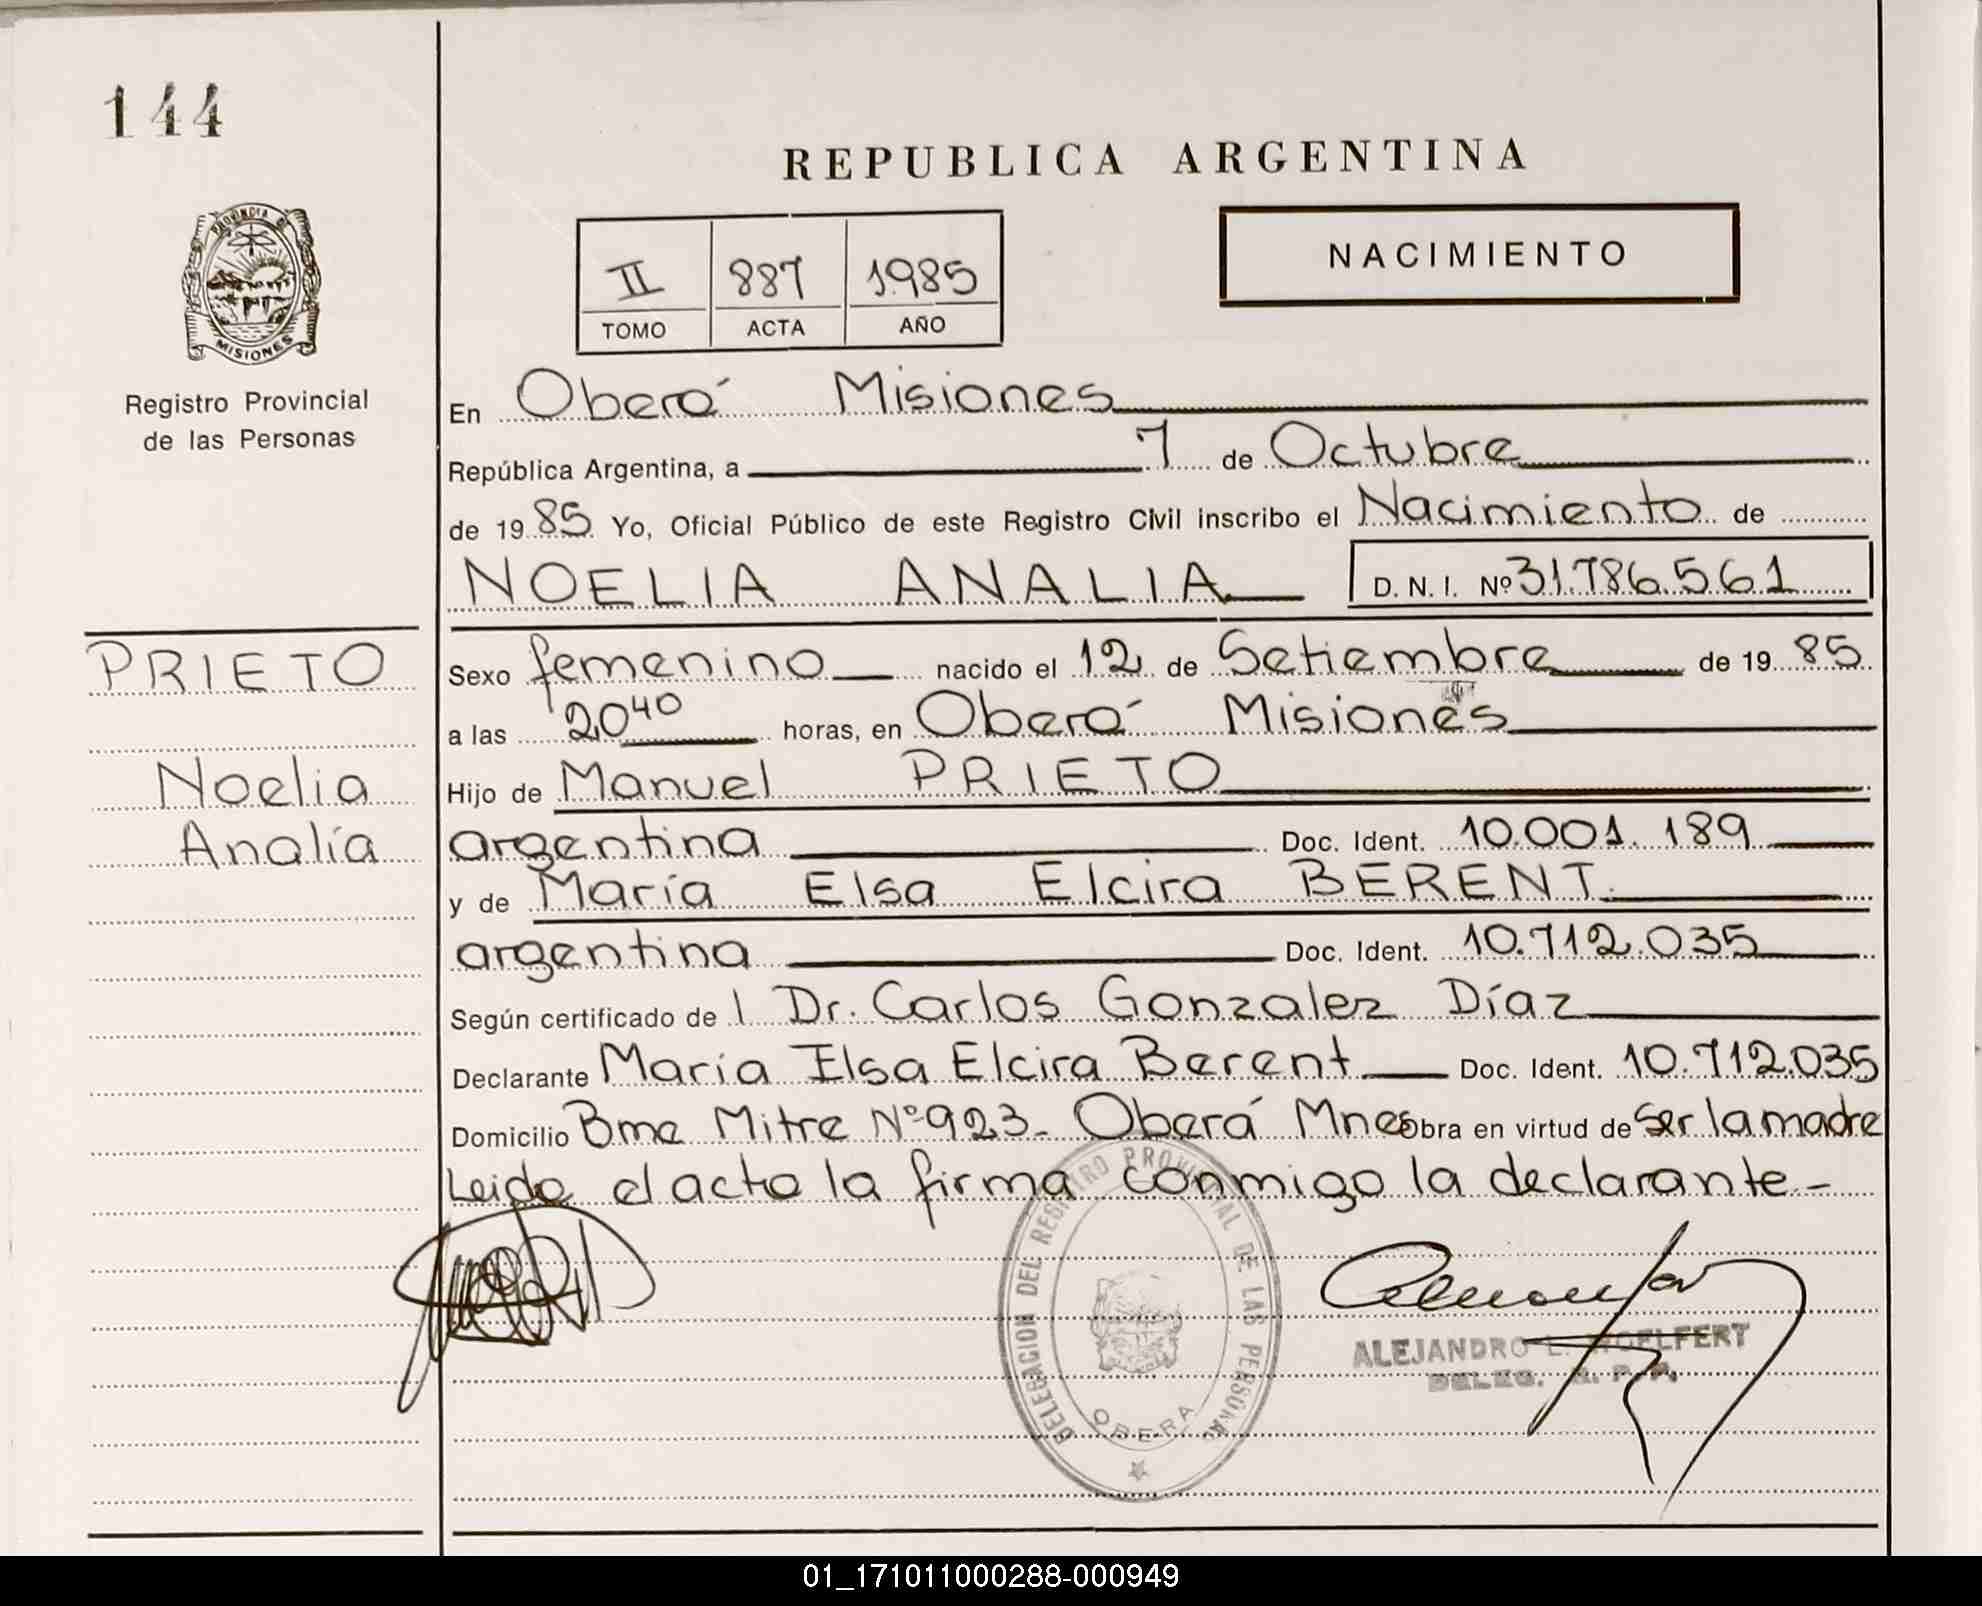 144
REPUBLICA ARGENTINA
PROVINCIA DE
MISIONES
Registro Provincial
de las Personas
NACIMIENTO
II 887 1985
TOMO ACTA AÑO
En Oberá Misiones
República Argentina, a 7 de Octubre
de 1985 Yo, Oficial Público de este Registro Civil inscribo el Nacimiento de
NOELIA ANALIA D. N. I. Nº 31.786.561
PRIETO
Noelia
Analía
Sexo femenino nacido el 12 de Setiembre de 1985
a las 20 40 horas, en Oberá Misiones
Hijo de Manuel PRIETO
argentina Doc. Ident. 10.001.189
y de María Elsa Elcira BERENT
argentina Doc. Ident. 10.712.035
Según certificado de l Dr. Carlos Gonzalez Díaz
Declarante María Elsa Elcira Berent Doc. Ident. 10.712.035
Domicilio Bme Mitre Nº 923- Oberá Mnes Obra en virtud de ser la madre
Leida el acta la firma conmigo la declarante-
DELEGACION DEL REGISTRO PROVINCIAL DE LAS PERSONAS
OBERA
ALEJANDRO L. WOELFERT
DELEG. R. P. P.
01_171011000288-000949